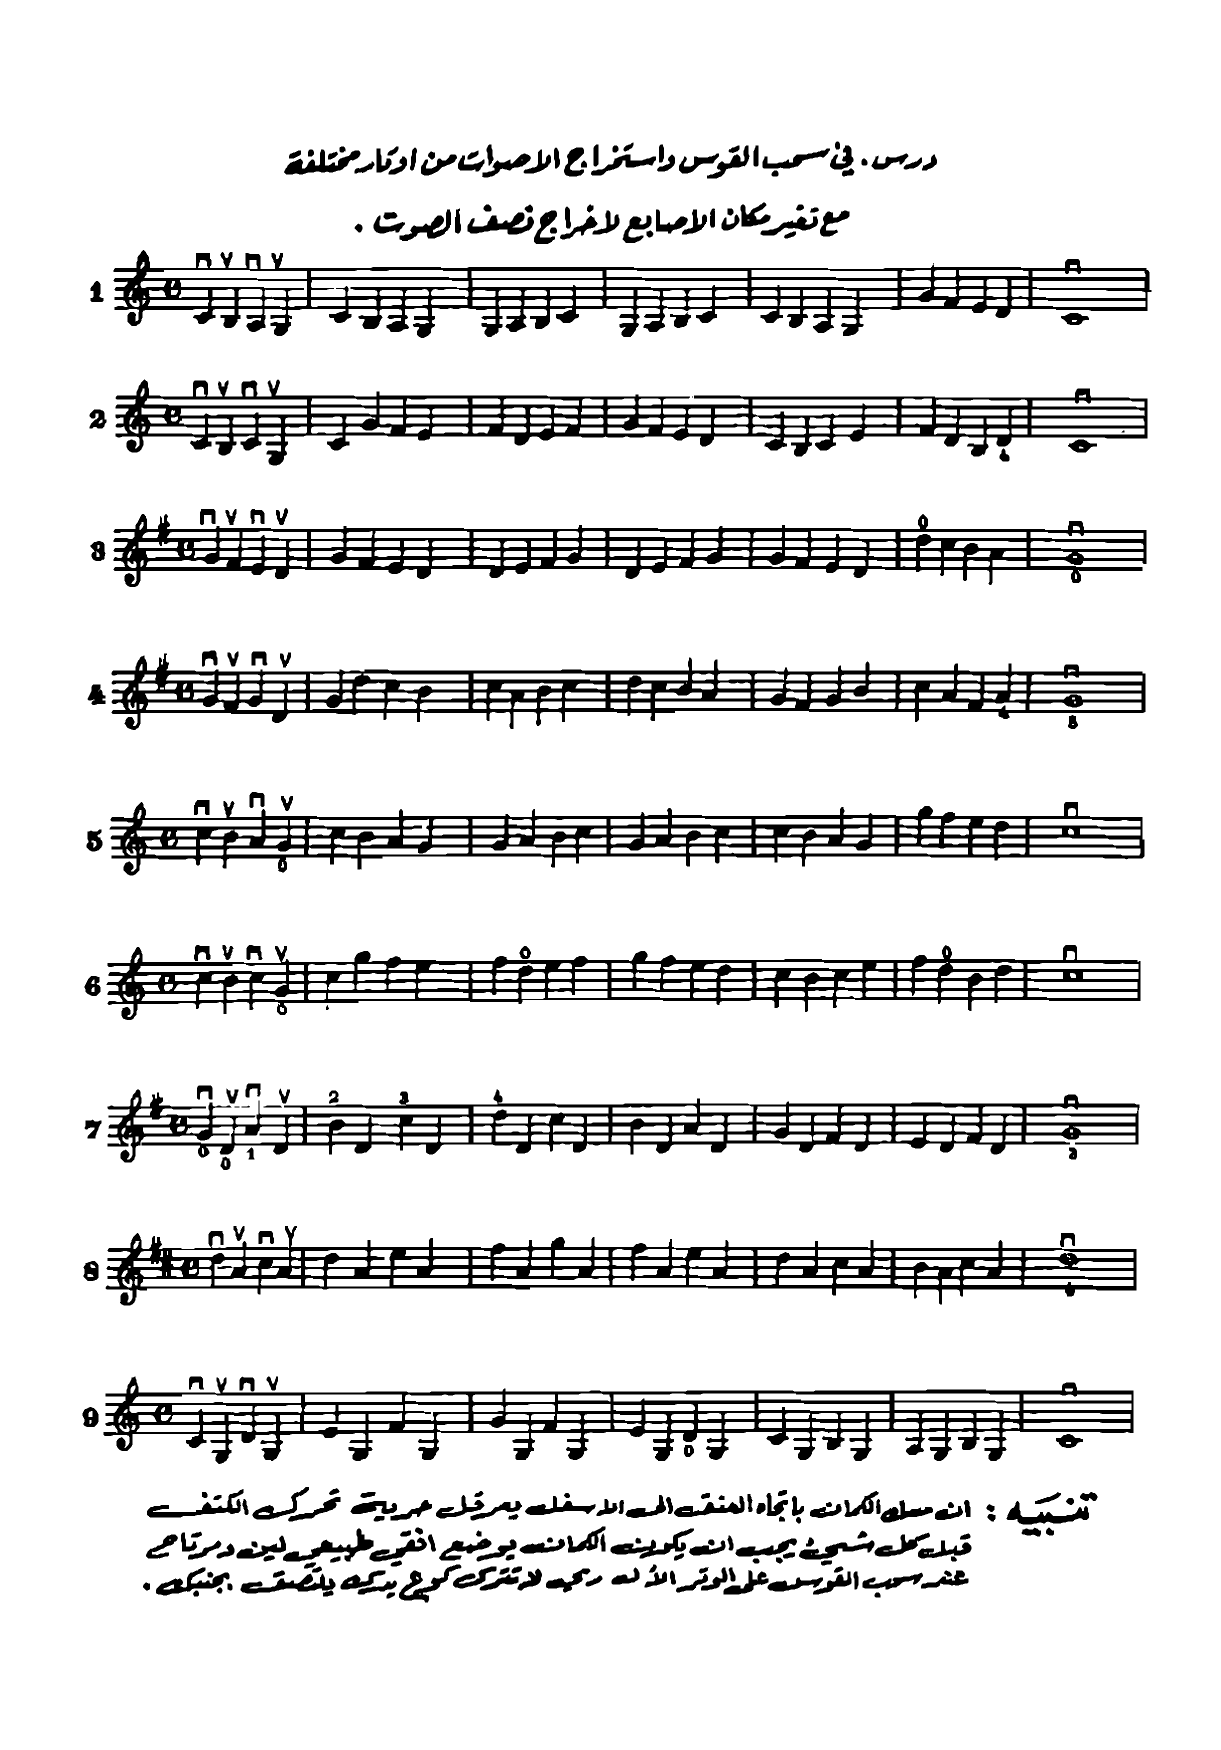 درس. في سحب القوس واستخراج الاصوات من اوتار مختلفة
مع تغير مكان الاصابع لاخراج نصف الصوت .
1
2
4
3
0
0
4
4
3
5
0
6
0
0
0
7
2
3
4
0
0
1
3
8
4
9
0
تنبيه : ان مسك الكمان باتجاه العنق الى الاسفل يعرقل حرية تحرك الكتف
قبل كل شيء يجب ان يكون الكمان بوضع افقي طبيعي لين ومرتاح
عند سحب القوس على الوتر الأول لا تترك كوع يدك يلتصق بجنبك .